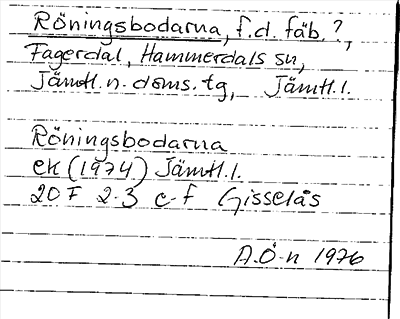 Röningsbodarna, f.d. fäb.?,
Fagerdal, Hammerdals sn,
Jämtl. n. doms. tg, Jämtl. l.
Röningsbodarna
ek (1974) Jämtl. l.
20 F 2-3 e-f Gisselås
A.Ö-n 1976